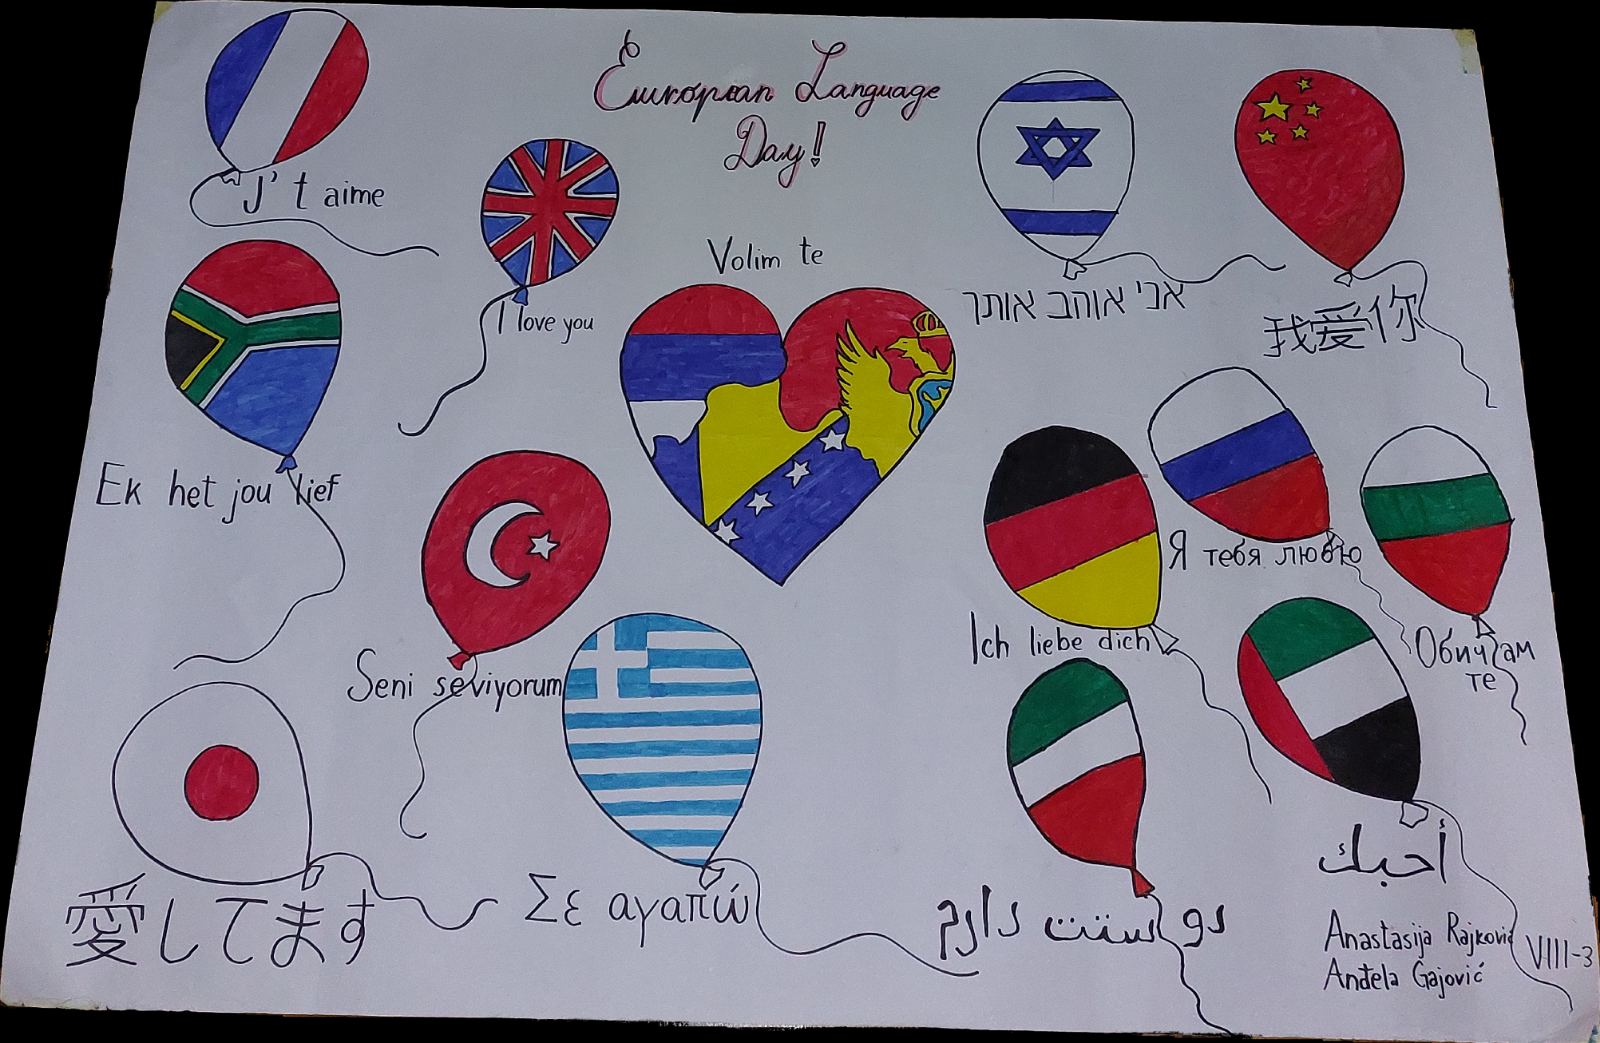 European Language
Day!
J' t aime
I love you
Volim te
אני אוהב אותך
我爱你
Ek het jou lief
Seni seviyorum
Ich liebe dich
Я тебя люблю
Обичам
те
愛してます
Σε αγαπώ
دوستت دارم
أحبك
Anastasija Rajković
Anđela Gajović
VIII-3